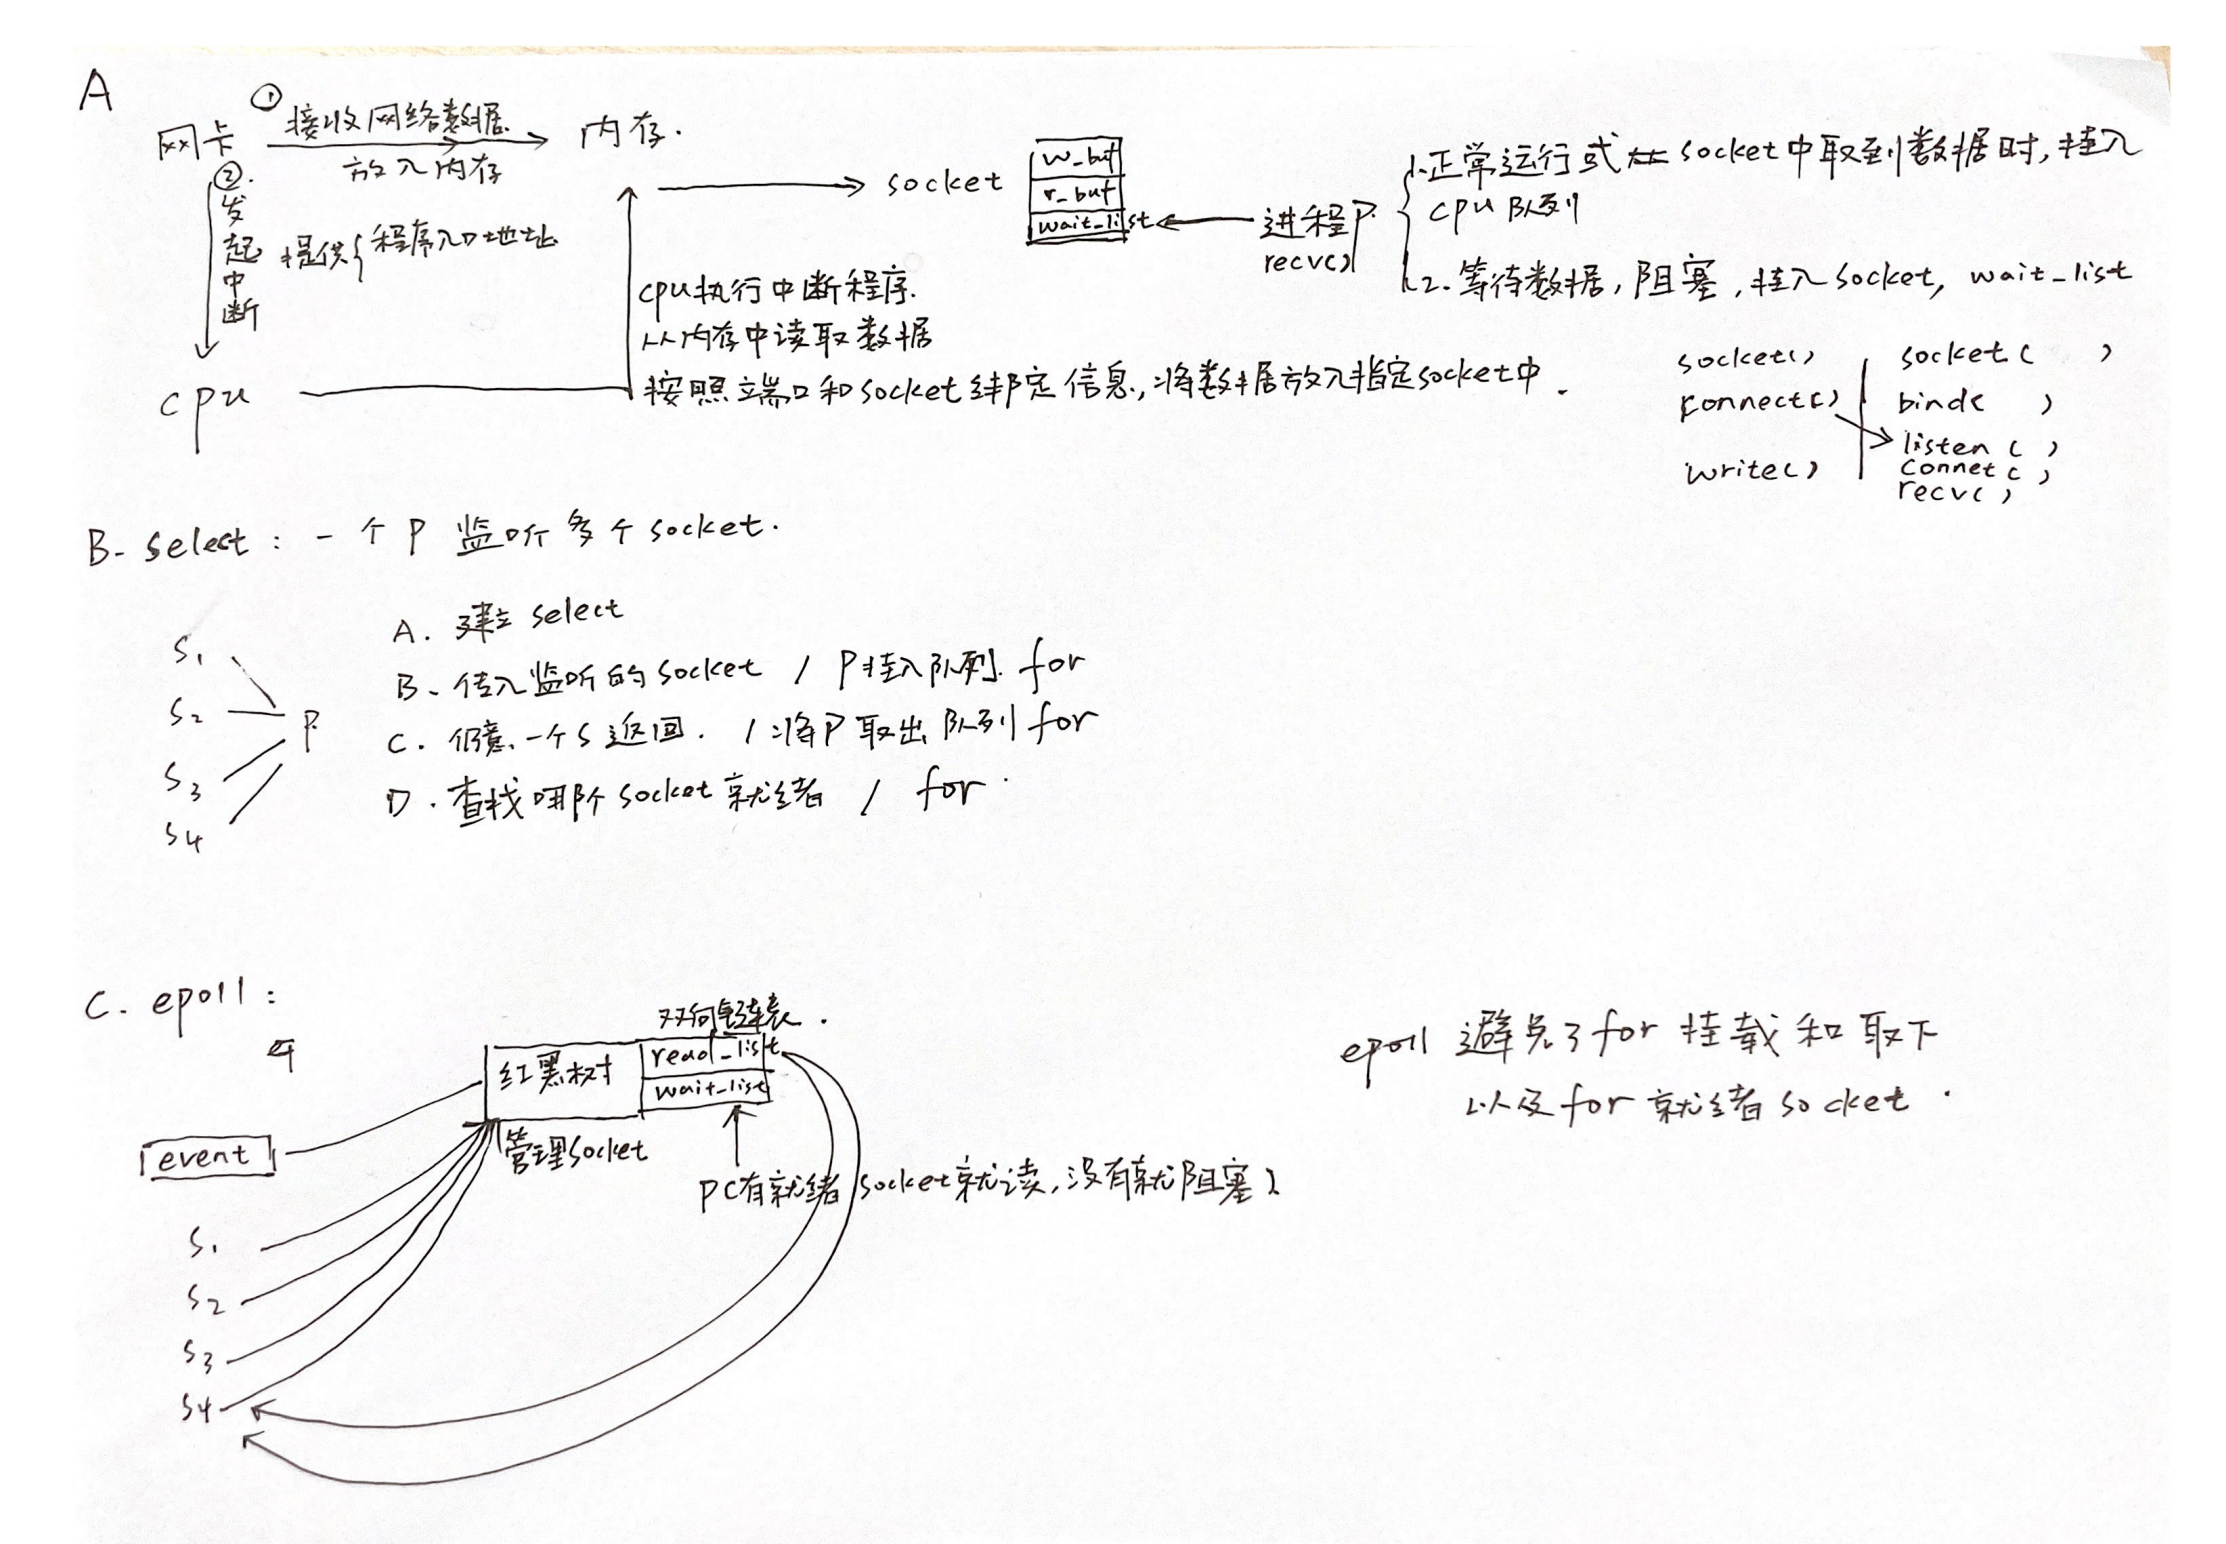 A
① 接收网络数据
网卡
放入内存
内存.
②.
发起中断
提供{程序入口地址
cpu
cpu执行中断程序.
从内存中读取数据
按照端口和socket绑定信息,将数据放入指定socket中.
socket
w_buf
r_buf
wait_list
进程P.
recv()
1.正常运行或 socket中取到数据时,挂入
cpu队列
2.等待数据,阻塞,挂入socket, wait_list
socket()
connect()
write()
socket( )
bind( )
listen( )
connet( )
recv( )
B. select: 一个P监听多个socket.
S1
S2
S3
S4
P
A. 建立select
B. 传入监听的socket / P挂入队列. for
C. 任意一个S返回. / 将P取出队列 for
D. 查找哪个socket就绪 / for.
C. epoll:
双向链表.
红黑树
read_list
wait_list
管理socket
event
P(有就绪socket就读,没有就阻塞)
S1
S2
S3
S4
epoll避免了for挂载和取下
以及for就绪socket.